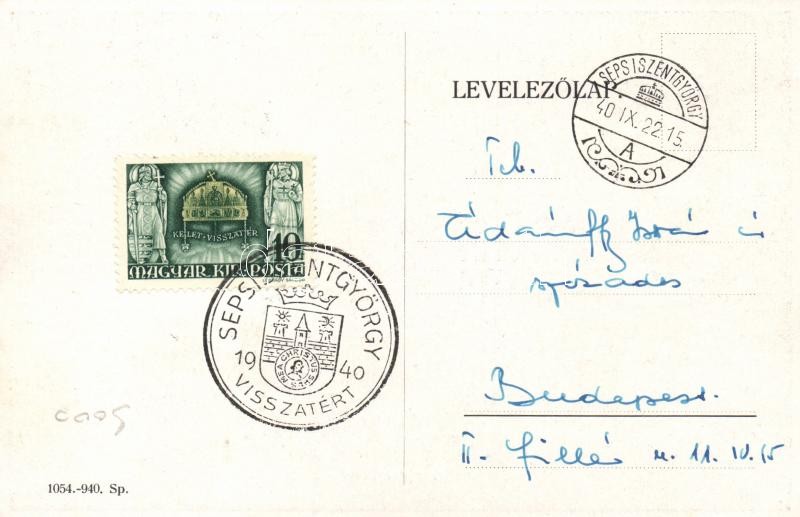 LEVELEZŐLAP.
SEPSISZENTGYÖRGY
40 IX. 22.15
A
Tcb.
István úr
százados
Budapest.
II. u. 11. IV. 15
KELET·VISSZATÉR
10
MAGYAR KIR. POSTA
SEPSISZENTGYÖRGY
1940
VISSZATÉRT
MEA CHRISTUS SPES
1054.-940. Sp.